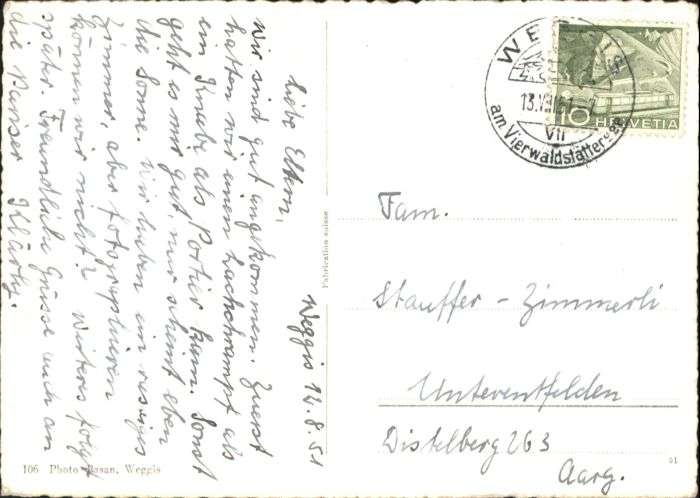 Weggis 12.8.51
Liebe Eltern,
Wir sind gut angekommen. Zuerst
hatten wir einen Lachkrampf als
ein Knabe als Portier kam. Sonst
geht es mir gut, nur scheint eben
die Sonne. Wir haben ein riesiges
Zimmer, aber fotographieren
können wir nicht? Weiteres folgt
später. Freundliche Grüsse auch an
die Pariser Klärly.
106 Photo Basan, Weggis
Fabrication suisse
WEGGIS
13.VIII.51
VII
am Vierwaldstättersee
10 HELVETIA
Fam.
Stauffer - Zimmerli
Unterentfelden
Distelberg 263
Aarg.